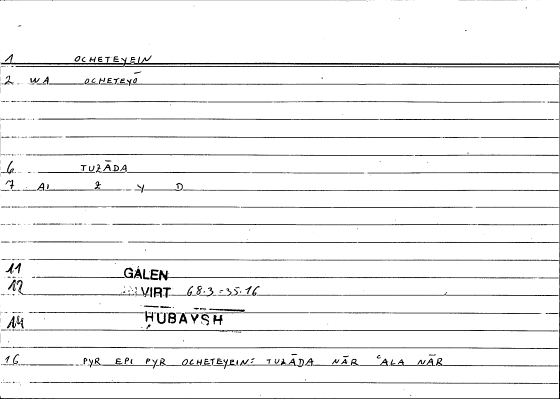 1 OCHETEYEIN
2 WA OCHETEYŌ
6 TUZĀDA
7 AI Z Y D
11 GALEN
12 VIRT 68.3=35.16
14 ḤUBAYSH
16 PYR EPI PYR OCHETEYEIN: TUZĀDA NĀR ʿALA NĀR